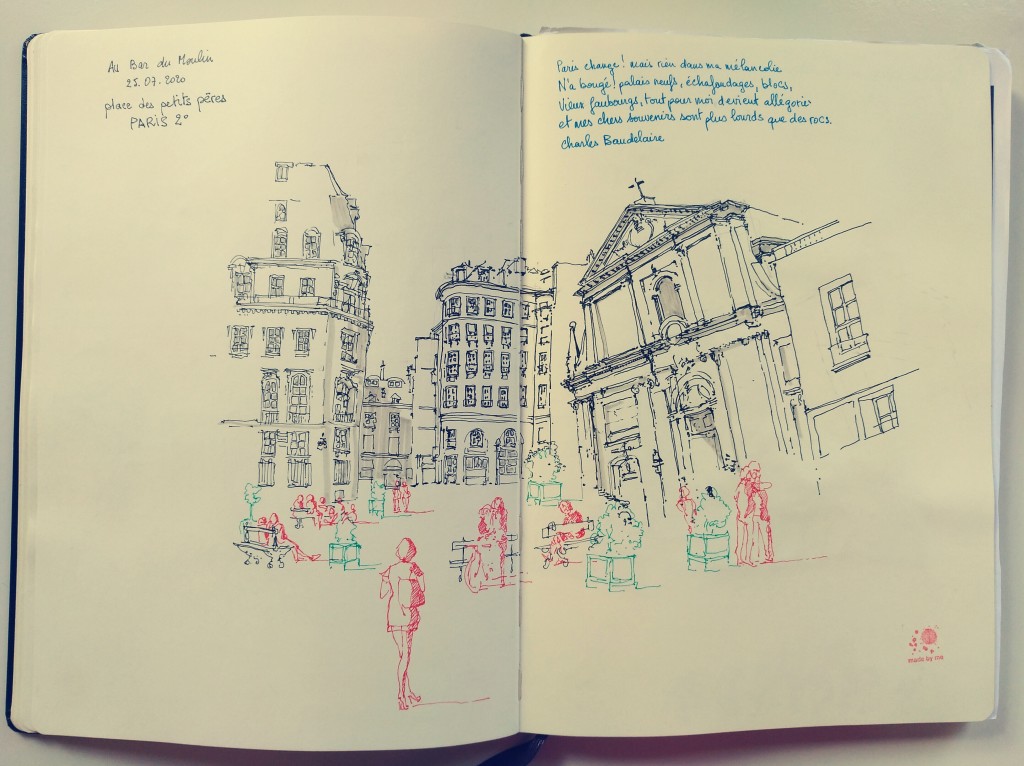 Au Bar du Moulin
25.07.2020
place des petits pères
PARIS 2°
Paris change! mais rien dans ma mélancolie
N'a bougé! palais neufs, échafaudages, blocs,
Vieux faubourgs, tout pour moi devient allégorie
et mes chers souvenirs sont plus lourds que des rocs.
Charles Baudelaire
made by me